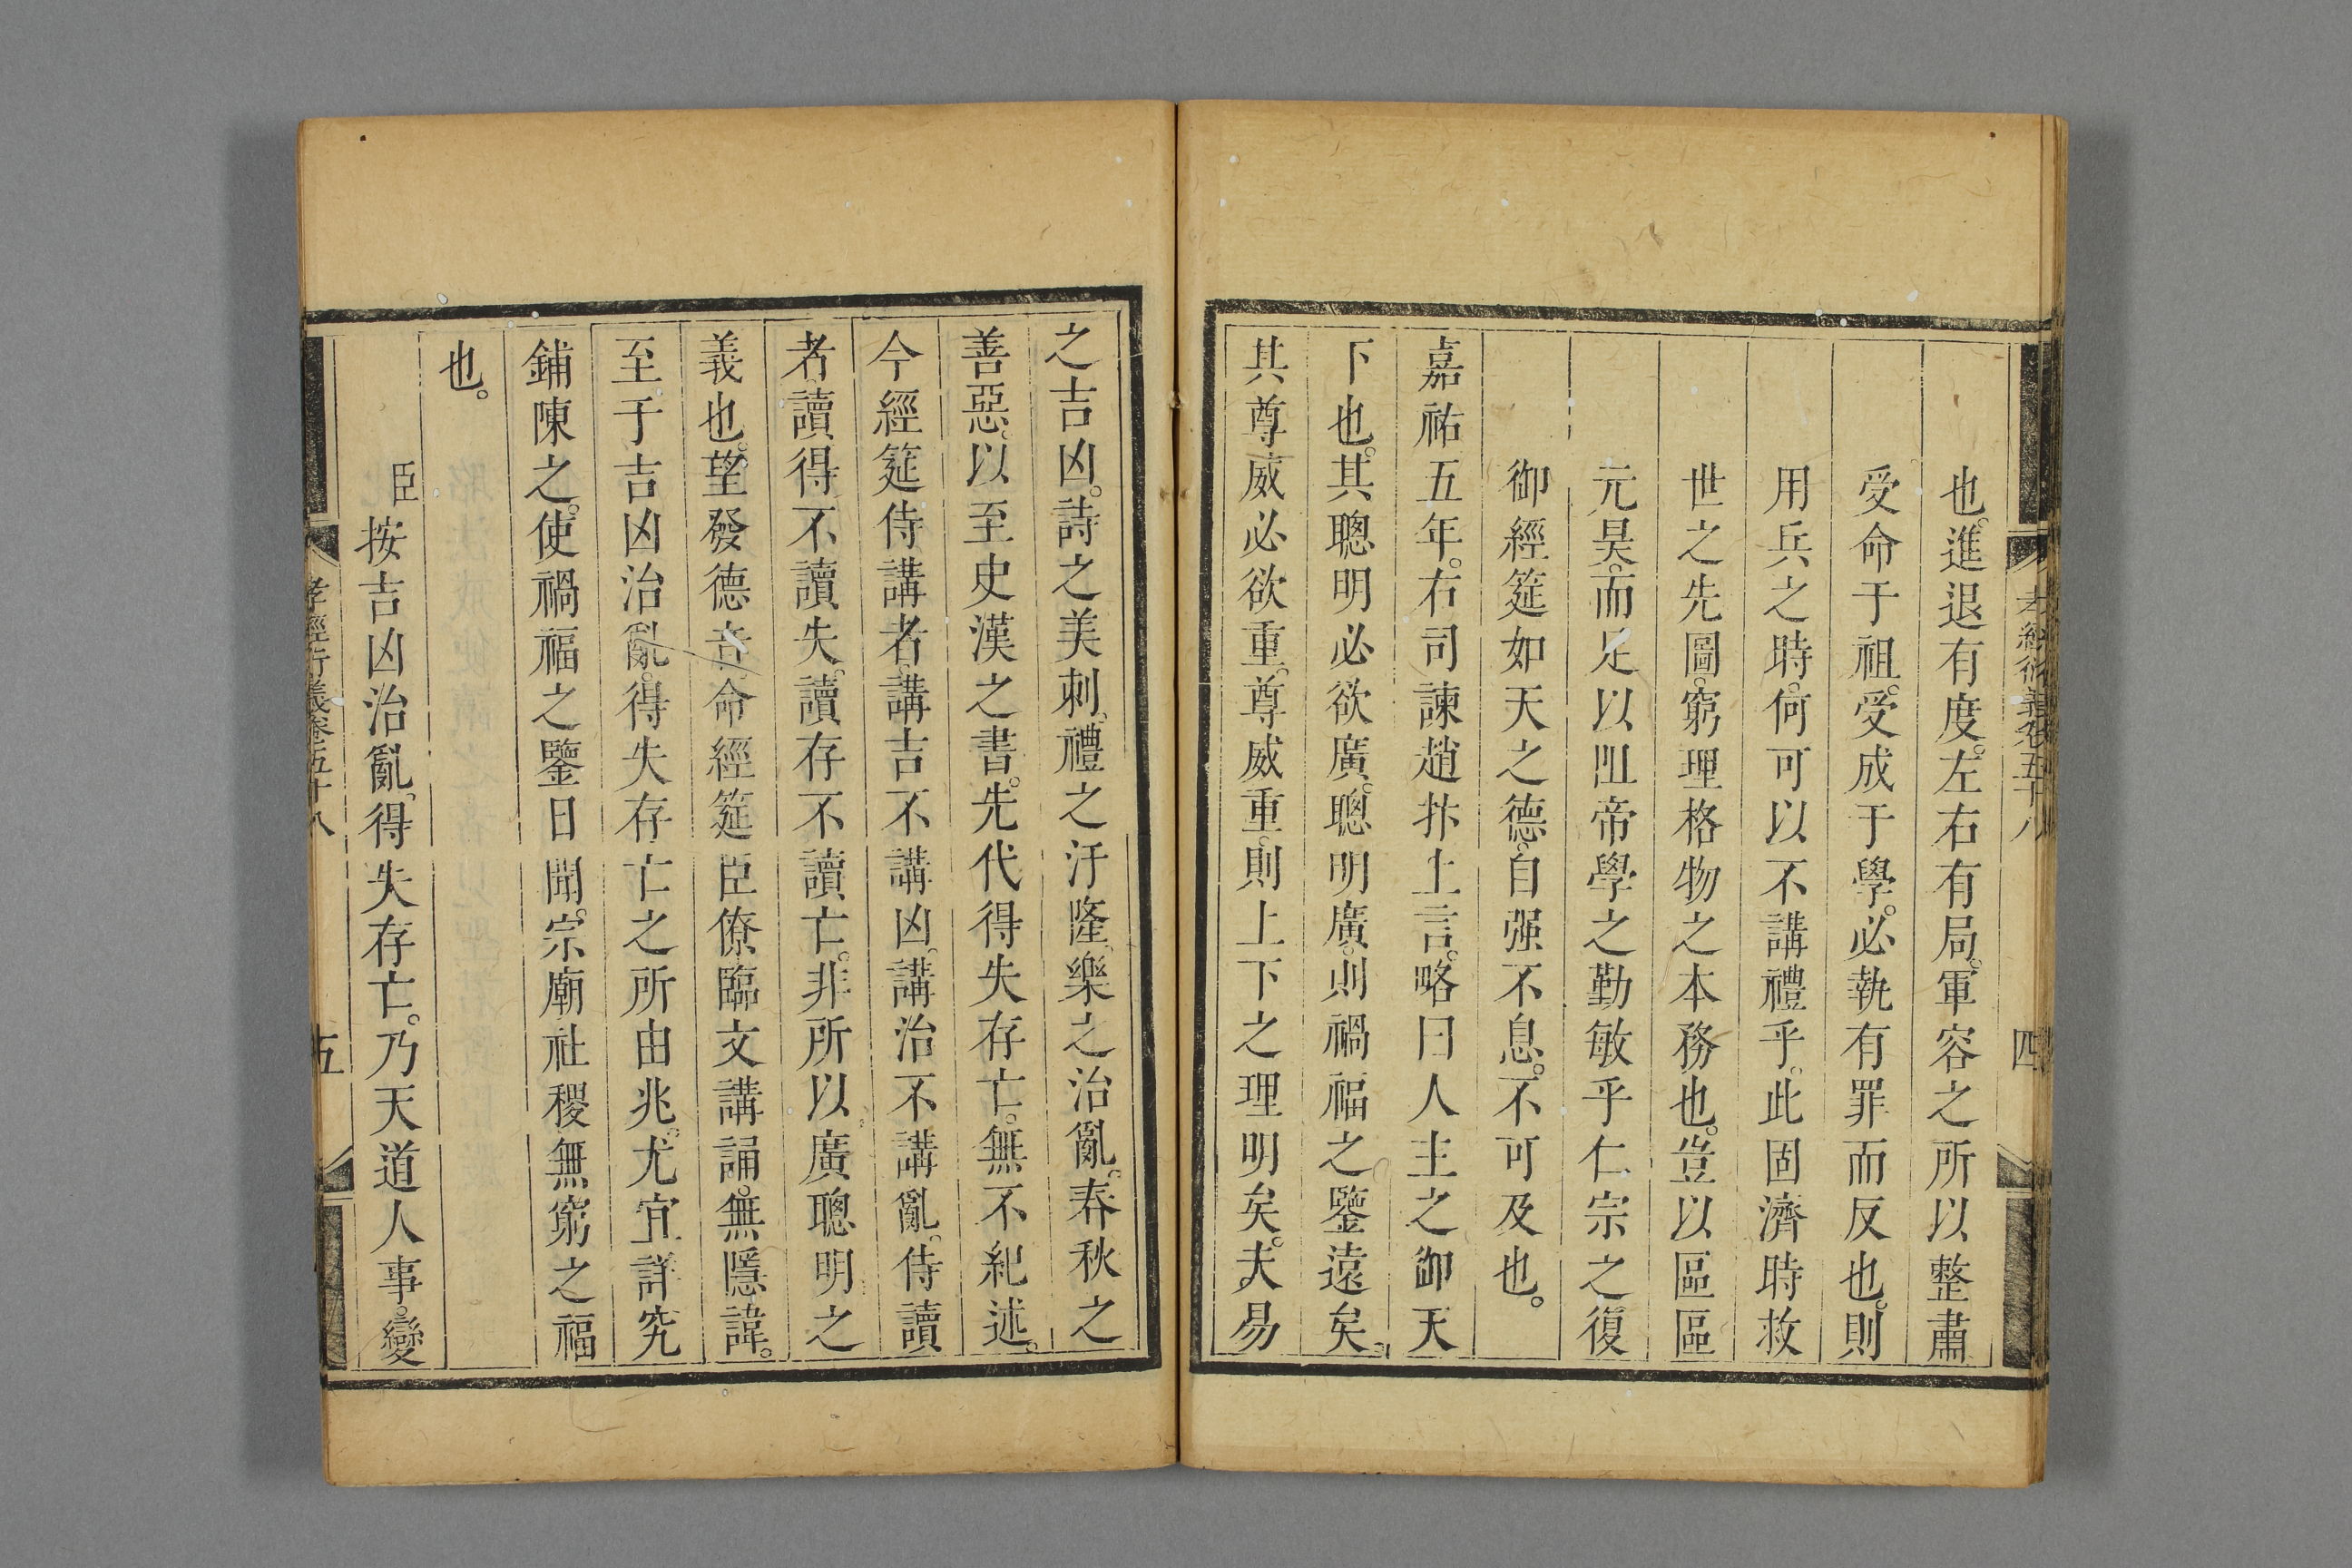 孝經衍義卷五十八 四
也。進退有度。左右有局。軍容之所以整肅
受命于祖。受成于學。必執有罪而反也。則
用兵之時。何可以不講禮乎。此固濟時救
世之先圖。窮理格物之本務也。豈以區區
元昊。而足以阻帝學之勤敏乎仁宗之復
御經筵如天之德。自强不息。不可及也。
嘉祐五年。右司諫趙抃上言。略曰人主之御天
下也。其聰明必欲廣。聰明廣。則禍福之鑒遠矣。
其尊威必欲重。尊威重。則上下之理明矣。夫易
之吉凶。詩之美刺、禮之汙隆、樂之治亂。春秋之
善惡。以至史漢之書。先代得失存亡。無不紀述。
今經筵侍講者。講吉不講凶。講治不講亂。侍讀
者。讀得不讀失。讀存不讀亡。非所以廣聰明之
義也。望發德音。命經筵臣僚臨文講誦。無隱諱。
至于吉凶治亂。得失存亡之所由兆。尤宜詳究
鋪陳之。使禍福之鑒日聞。宗廟社稷無窮之福
也。
臣按吉凶治亂、得失存亡。乃天道人事。變
孝經衍義卷五十八 五